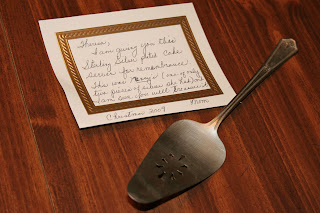 Theresa,
I am giving you this
Sterling Silver petal Cake
server for remembrance
This was Mary's (one of only
two pieces of silver she had) and
I am sure you will treasure
Mom
Christmas 2009